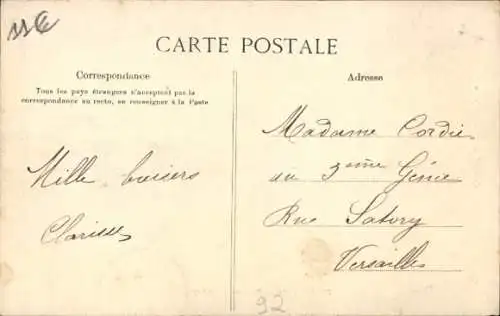 CARTE POSTALE
Correspondance
Tous les pays étrangers n'acceptent pas la
correspondance au recto, se renseigner à la Poste
Mille baisers
Clarisse
Adresse
Madame Cordie
au 3ème Génie
Rue Satory
Versailles
92